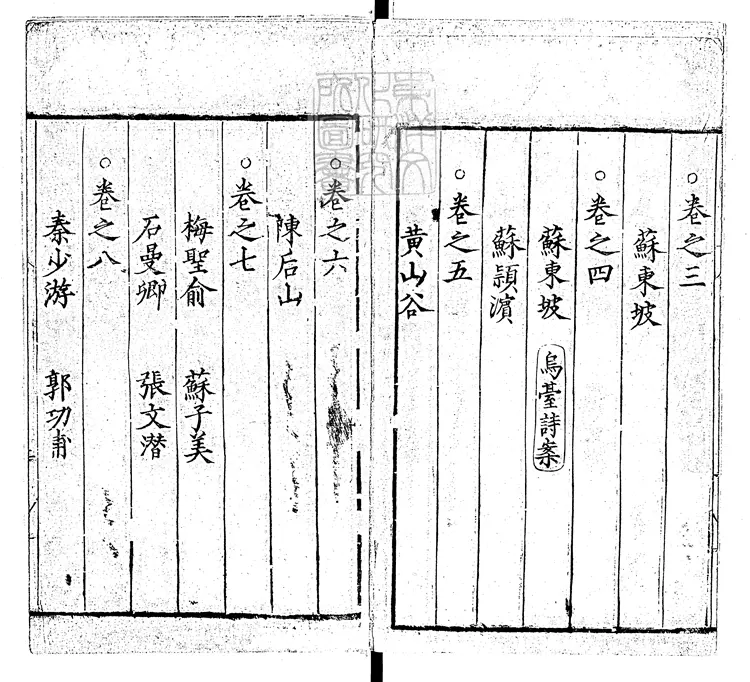 ○卷之三
蘇東坡
○卷之四
蘇東坡 烏臺詩案
蘇頴濱
○卷之五
黄山谷
○卷之六
陳后山
○卷之七
梅聖俞 蘇子美
石曼卿 張文潛
○卷之八
秦少游 郭功甫